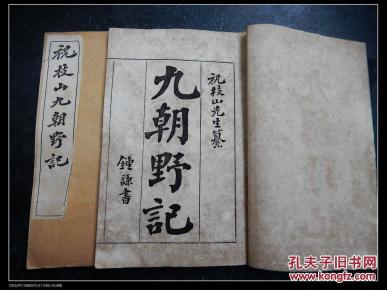 祝枝山九朝野記
祝枝山先生纂
九朝野記
鍾謙書
孔夫子旧书网